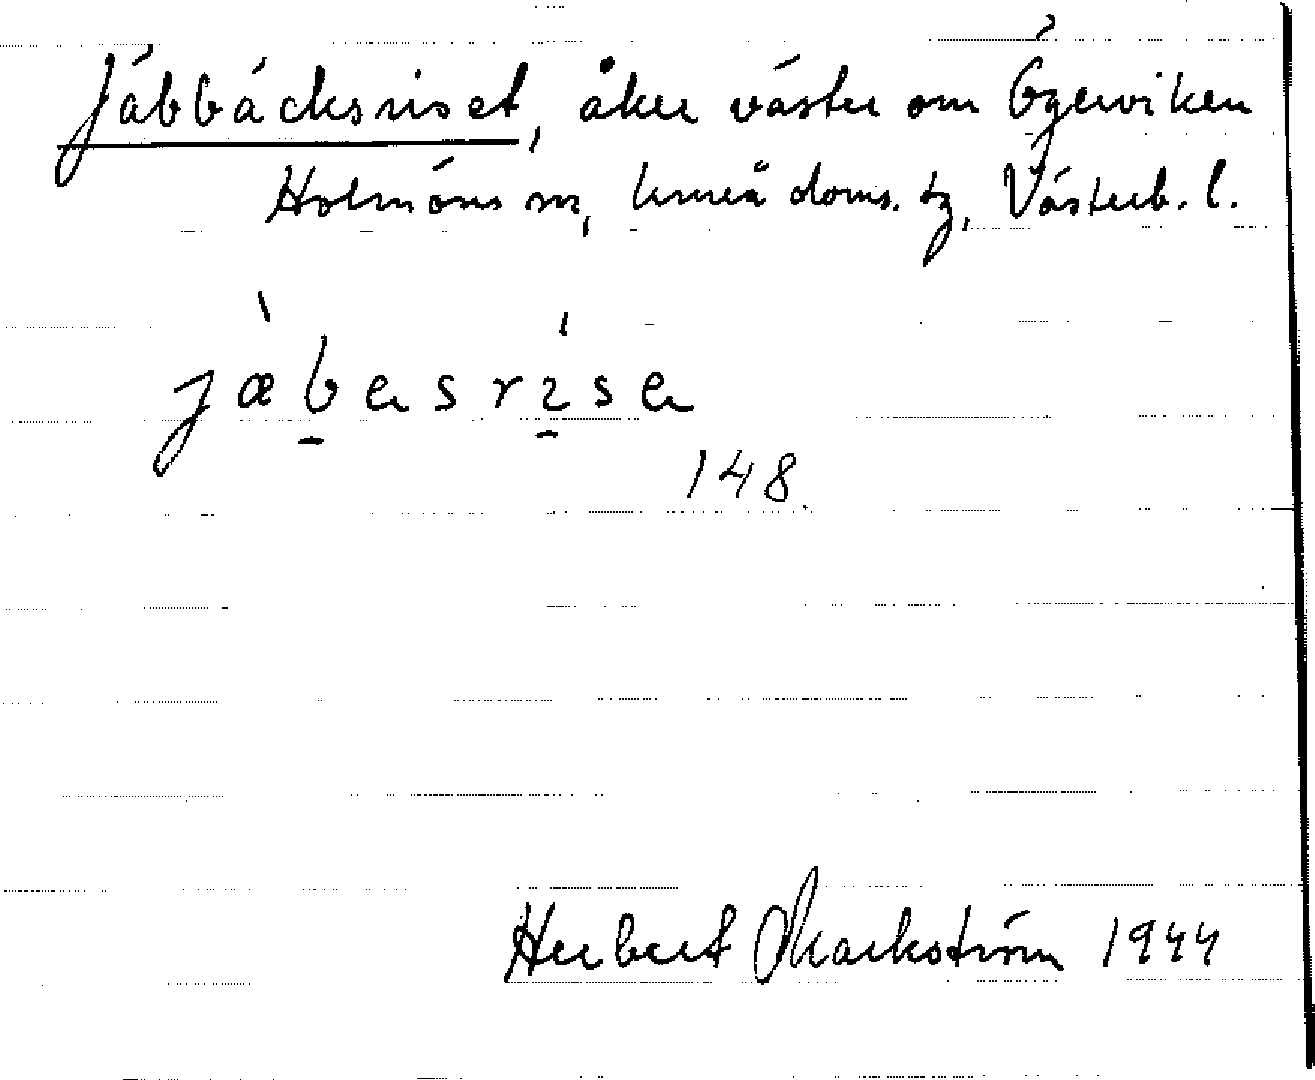 Jäbbäcksriset, åker väster om Ögerviken
Holmöns sn, Umeå doms. tg, Västerb. l.
jäbasrisa
148.
Herbert Markström 1944